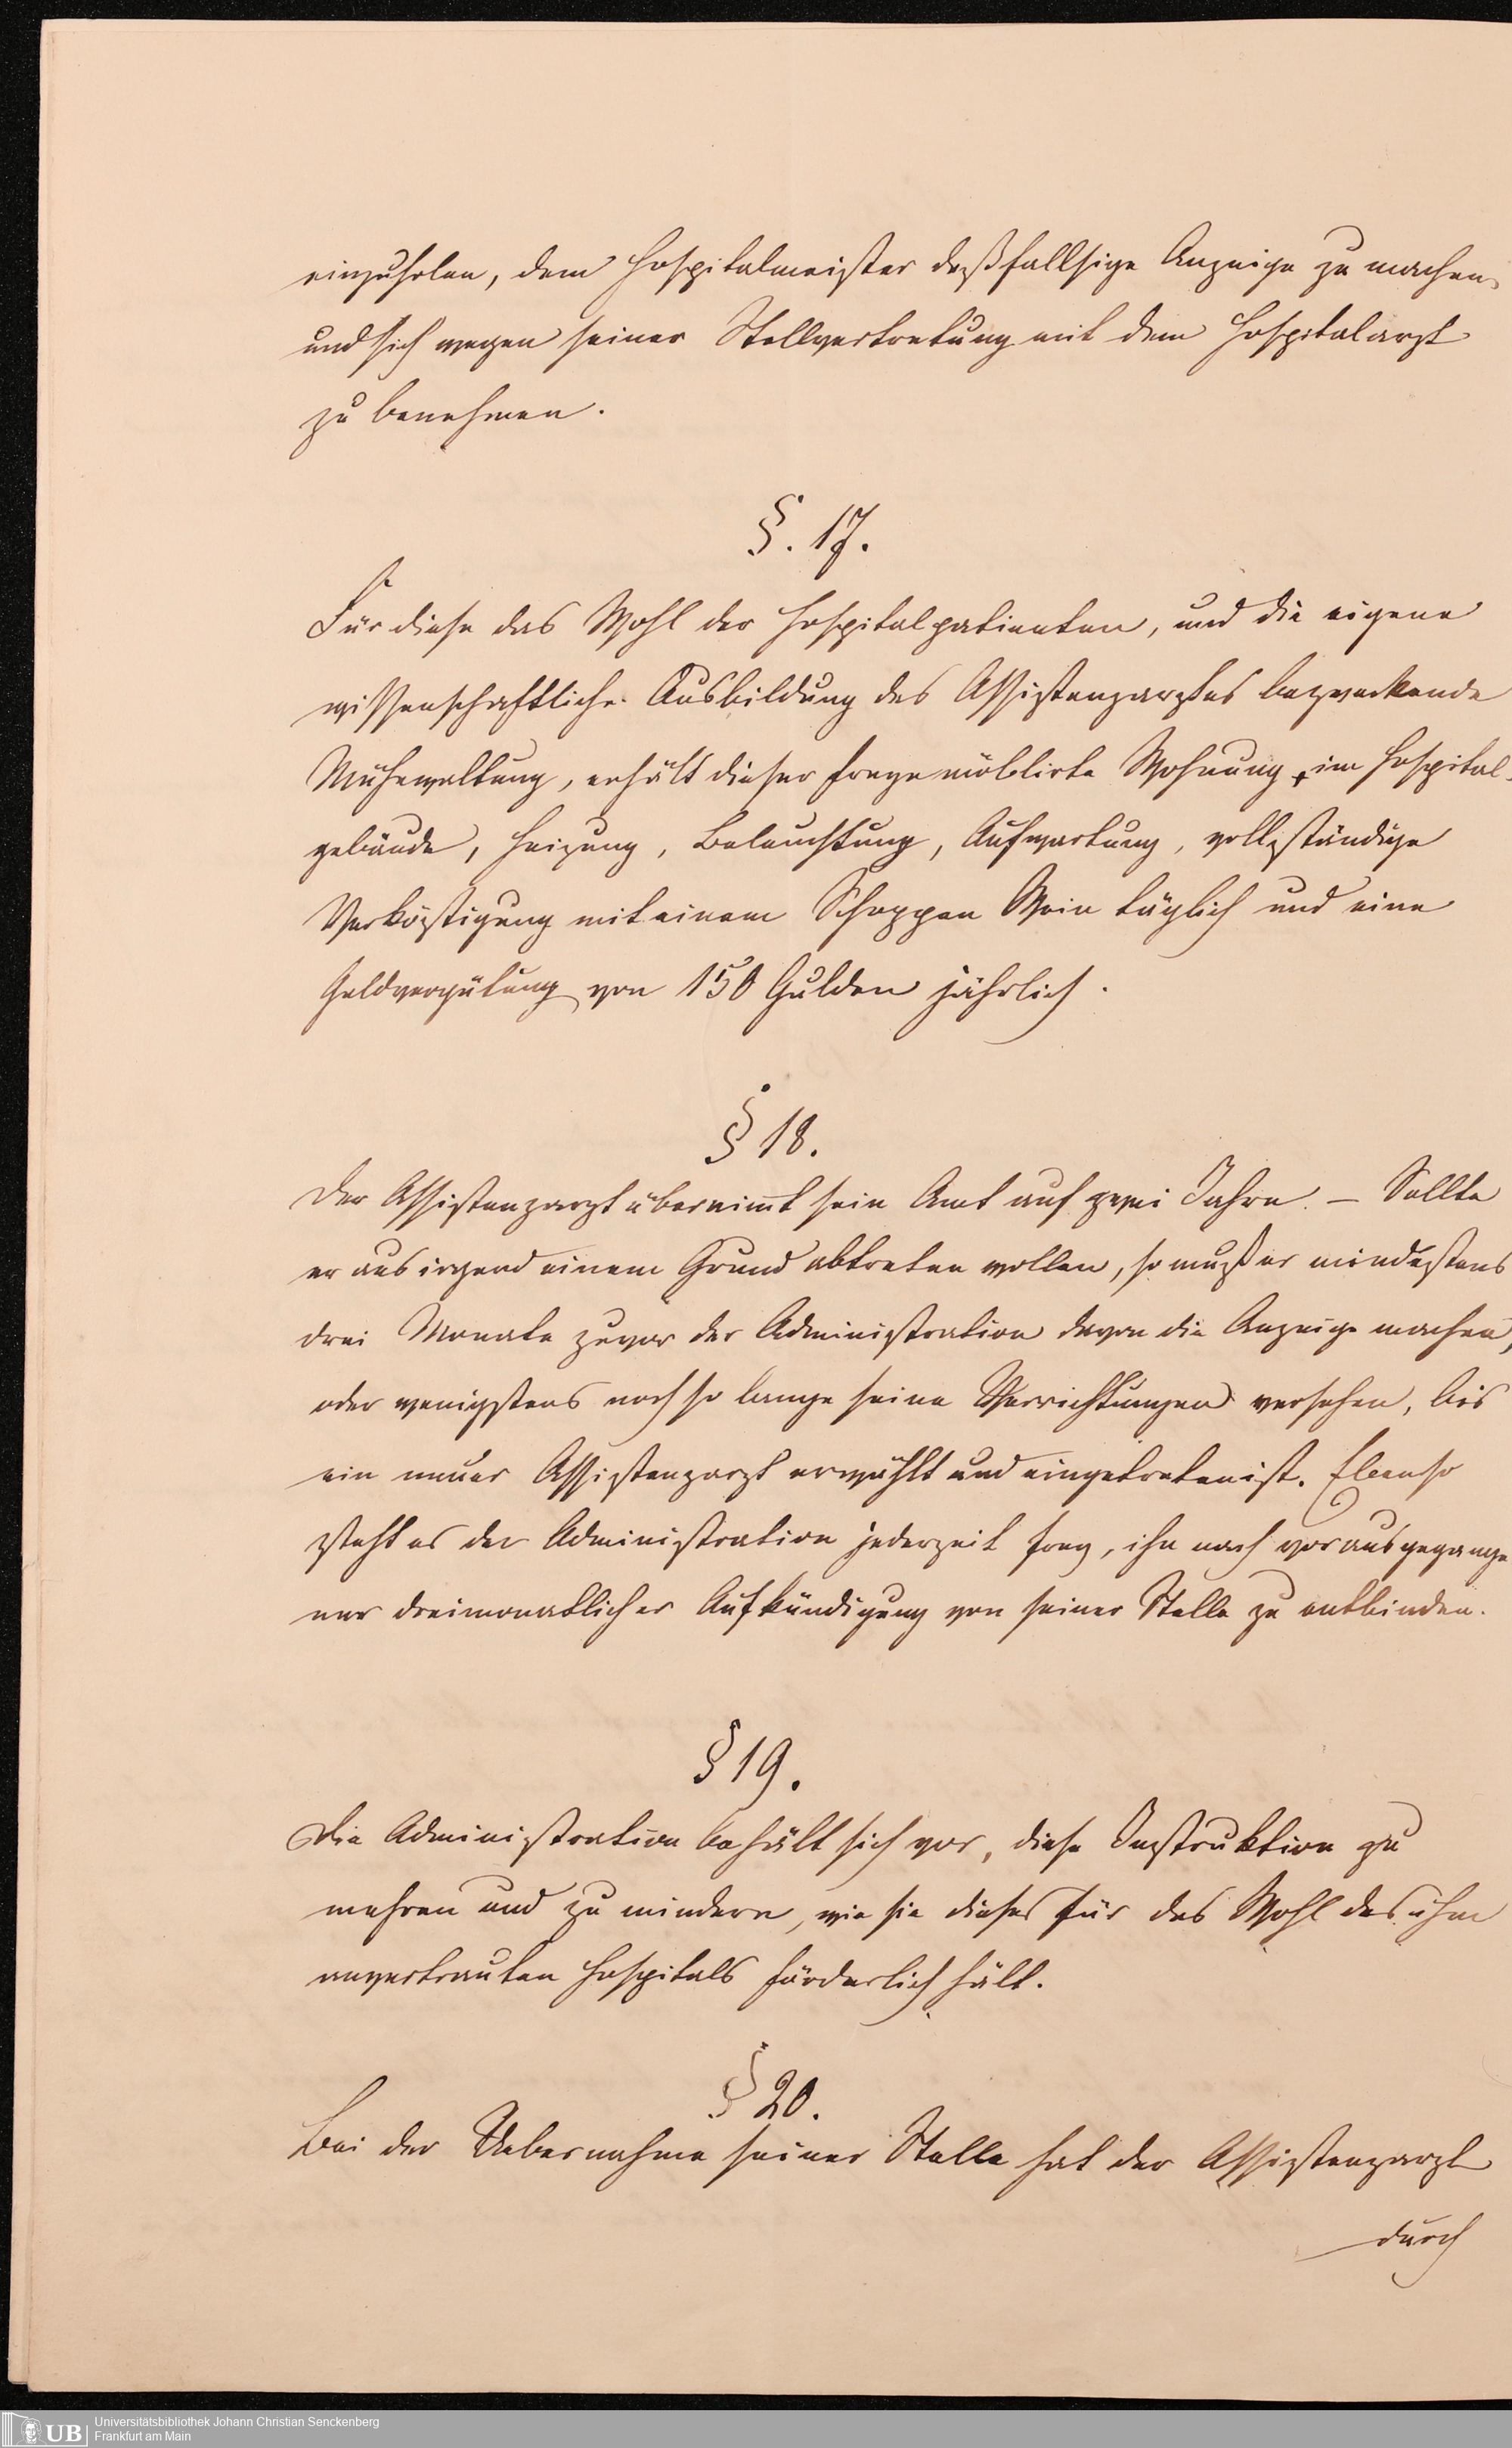 einzuholen, dem Hospitalmeister deßfallsige Anzeige zu machen,
und sich wegen seiner Stellvertretung mit dem Hospitalarzt
zu benehmen.
§. 17.
Für diese das Wohl der Hospitalpatienten, und die eigene
wissenschaftliche Ausbildung des Assistenzarztes bezweckende
Mühewaltung, erhält dieser freye möblirte Wohnung im Hospital-
gebäude, Heizung, Beleuchtung, Aufwartung, vollständige
Verköstigung mit einem Schoppen Wein täglich und eine
Geldvergütung von 150 Gulden jährlich.
§ 18.
Der Assistenzarzt übernimt sein Amt auf zwei Jahre. – Sollte
er aus irgend einem Grund abtreten wollen, so muß er mindestens
drei Monate zuvor der Administration davon die Anzeige machen,
oder wenigstens noch so lange seine Verrichtungen versehen, bis
ein neuer Assistenzarzt erwählt und eingetreten ist. Ebenso
steht es der Administration jederzeit frey, ihn nach vorausgegange
ner dreimonatlicher Aufkündigung von seiner Stelle zu entbinden.
§ 19.
Die Administration behält sich vor, diese Instruktion zu
mehren und zu mindern, wie sie dieses für das Wohl des ihm
anvertrauten Hospitals förderlich hält.
§ 20.
Bei der Uebernahme seiner Stelle hat der Assistenzarzt
durch
Universitätsbibliothek Johann Christian Senckenberg
UB Frankfurt am Main